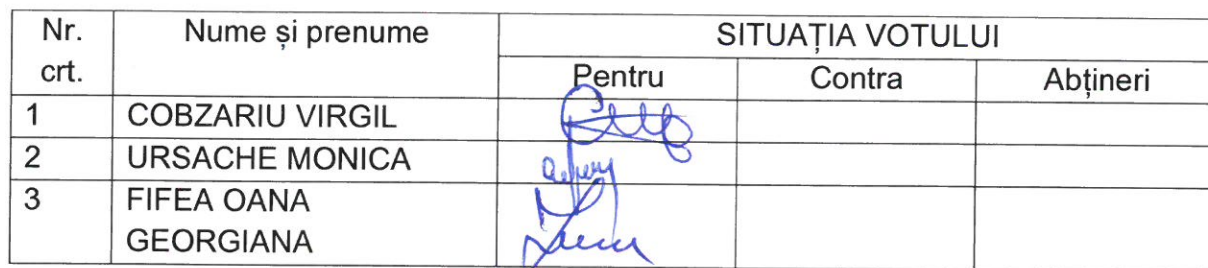 Nr. crt. Nume și prenume SITUAȚIA VOTULUI
Pentru Contra Abțineri
1 COBZARIU VIRGIL
2 URSACHE MONICA
3 FIFEA OANA
GEORGIANA